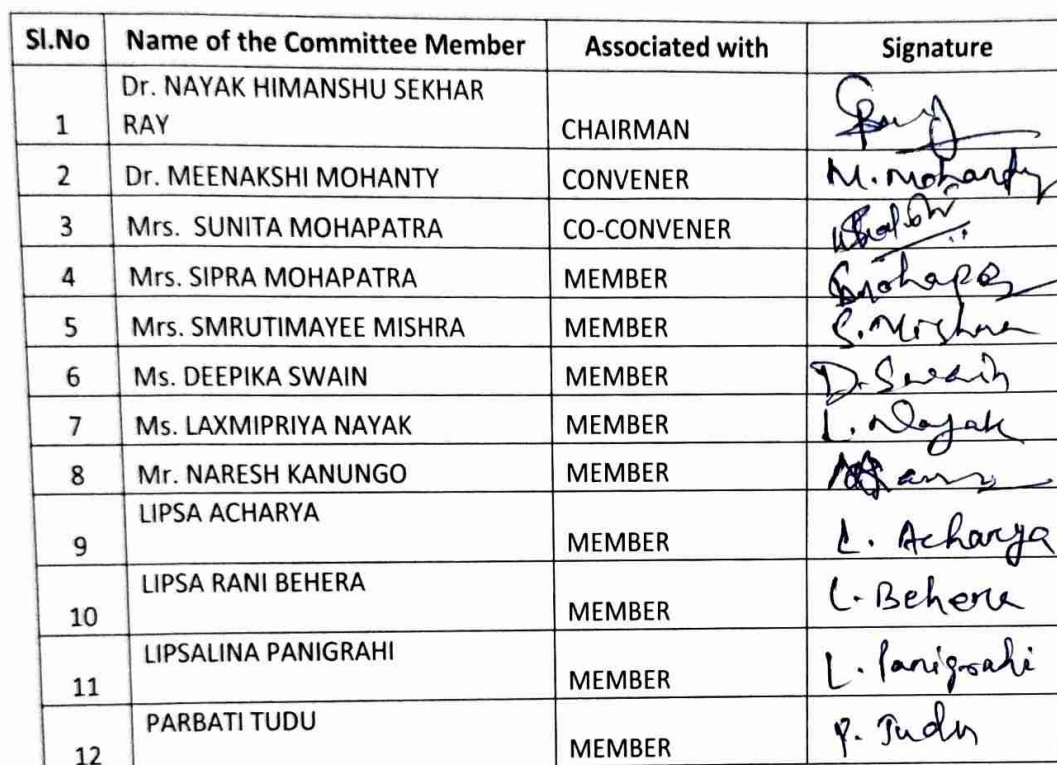 Sl.No Name of the Committee Member Associated with Signature
Dr. NAYAK HIMANSHU SEKHAR
1 RAY CHAIRMAN
2 Dr. MEENAKSHI MOHANTY CONVENER M. Mohanty
3 Mrs. SUNITA MOHAPATRA CO-CONVENER
4 Mrs. SIPRA MOHAPATRA MEMBER
5 Mrs. SMRUTIMAYEE MISHRA MEMBER S. Mishra
6 Ms. DEEPIKA SWAIN MEMBER D. Swain
7 Ms. LAXMIPRIYA NAYAK MEMBER L. Nayak
8 Mr. NARESH KANUNGO MEMBER
LIPSA ACHARYA
9 MEMBER L. Acharya
LIPSA RANI BEHERA
10 MEMBER L. Behera
LIPSALINA PANIGRAHI
11 MEMBER L. Panigrahi
PARBATI TUDU
12 MEMBER P. Tudu